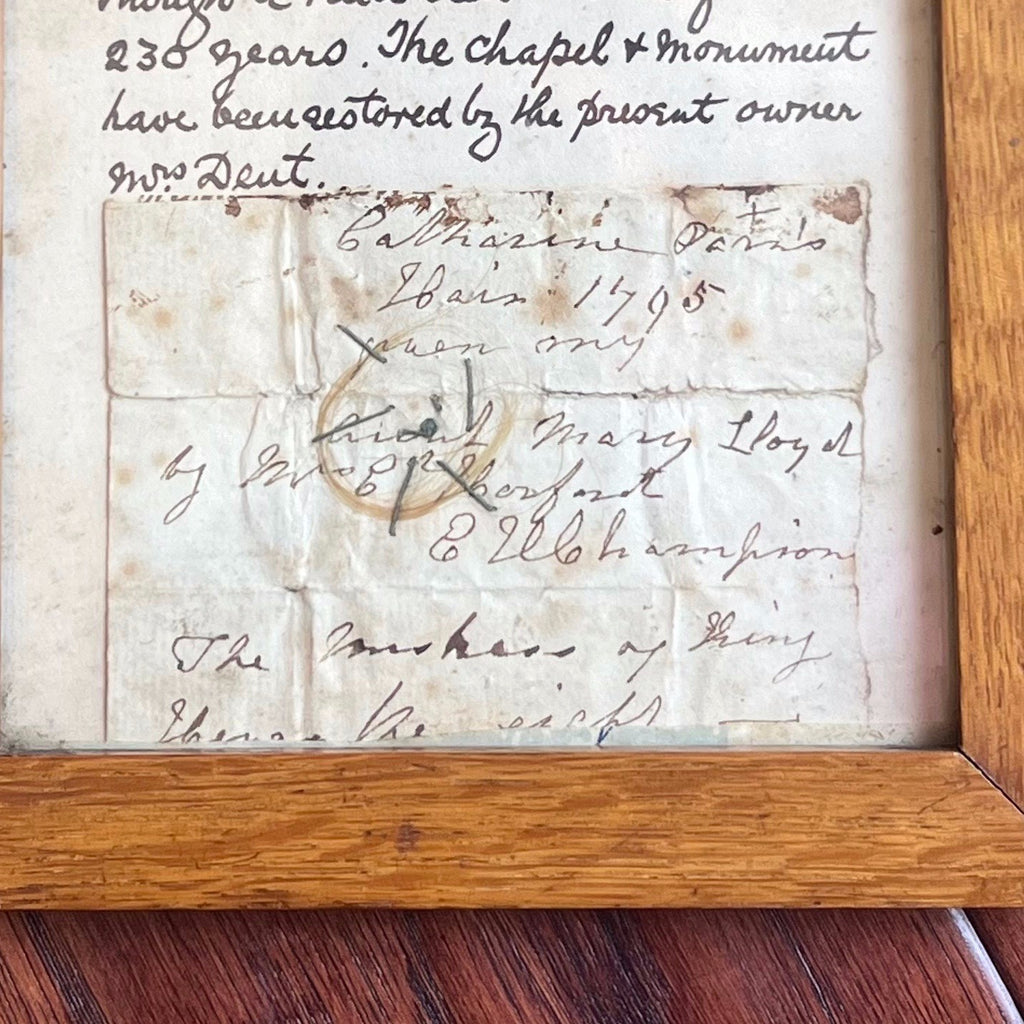 230 years. The chapel & Monument
have been restored by the present owner
Mrs Dent.
Catharine Parr's
Hair 1795
given my
Aunt Mary Lloyd
by Mrs E
E W Champion
The of King
Henry the eight